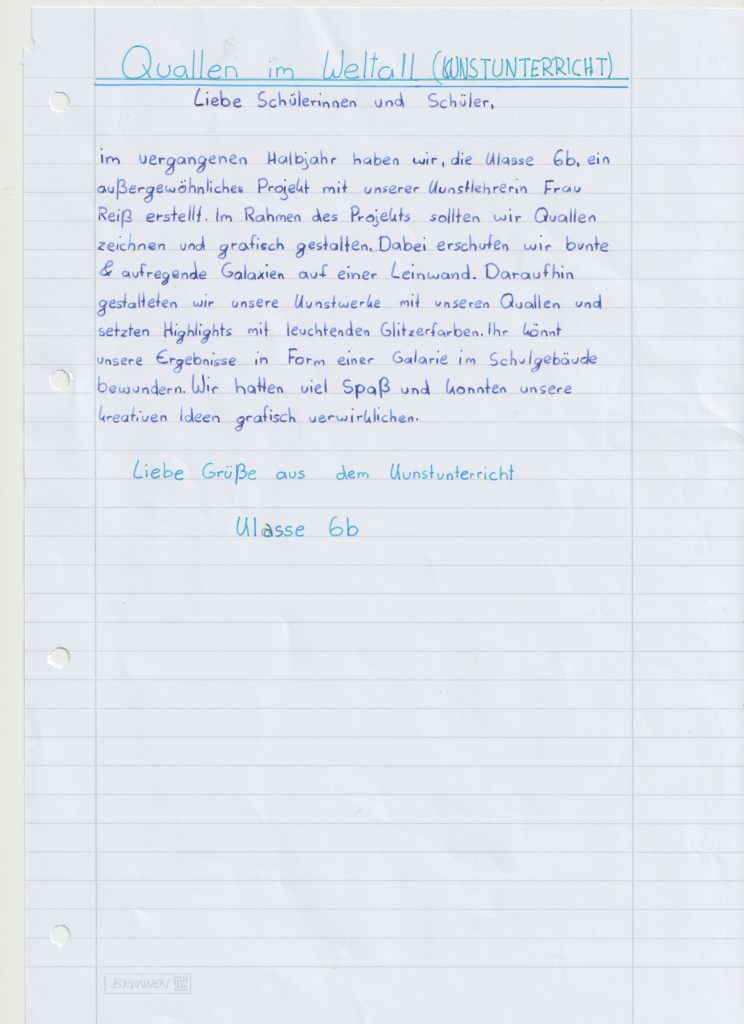 Quallen im Weltall (KUNSTUNTERRICHT)
Liebe Schülerinnen und Schüler,
im vergangenen Halbjahr haben wir, die Klasse 6b, ein
außergewöhnliches Projekt mit unserer Kunstlehrerin Frau
Reiß erstellt. Im Rahmen des Projekts sollten wir Quallen
zeichnen und grafisch gestalten. Dabei erschufen wir bunte
& aufregende Galaxien auf einer Leinwand. Daraufhin
gestalteten wir unsere Kunstwerke mit unseren Quallen und
setzten Highlights mit leuchtenden Glitzerfarben. Ihr könnt
unsere Ergebnisse in Form einer Galarie im Schulgebäude
bewundern. Wir hatten viel Spaß und konnten unsere
kreativen Ideen grafisch verwirklichen.
Liebe Grüße aus dem Kunstunterricht
Klasse 6b
BRUNNEN